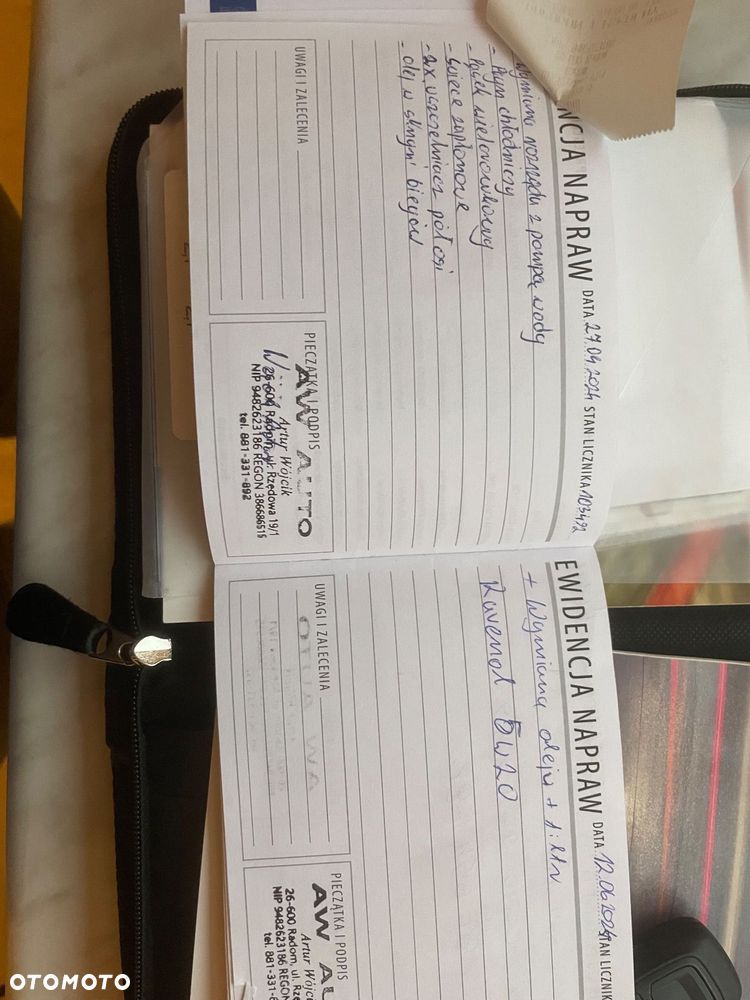 EWIDENCJA NAPRAW
DATA 27.04.2024 STAN LICZNIKA 103492
Wymiana rozrządu z pompą wody
- Płyn chłodniczy
- Pasek wielorowkowy
- świece zapłonowe
- 2x uszczelniacz półosi
- olej w skrzyni biegów
UWAGI I ZALECENIA
PIECZĄTKA I PODPIS
AW AUTO
Artur Wójcik
26-600 Radom, ul. Rzędowa 19/1
NIP 9482623186 REGON 386686515
tel. 881-331-892
EWIDENCJA NAPRAW
DATA 12.06.2024 STAN LICZNIK
+ Wymiana oleju + filtr
Ravenol 5W20
UWAGI I ZALECENIA
PIECZĄTKA I PODPIS
AW AU
Artur Wójc
26-600 Radom, ul. Rzę
NIP 9482623186 REGON
tel. 881-331-8
OTOMOTO